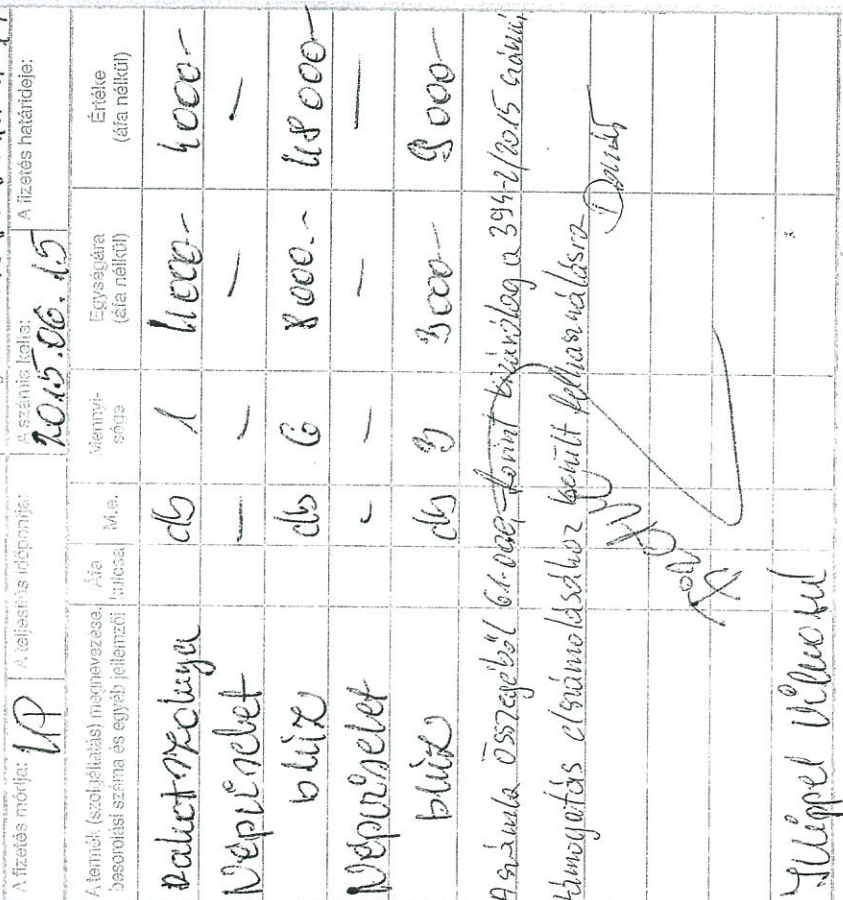 A fizetés módja: KP A teljesítés időpontja: A számla kelte: 2015.06.15 A fizetés határideje:
A termék (szolgáltatás) megnevezése, besorolási száma és egyéb jellemzői Áfa kulcsa M.e. Mennyi-sége Egységára (áfa nélkül) Értéke (áfa nélkül)
Pakolt szoknya db 1 4000.- 4000.-
Népviselet — — — —
blúz db 6 8000.- 48000.-
Népviselet - — — —
blúz db 3 3000.- 9000.-
A számla összegéből 61.000,- forint kizárólag a 394-2/2015 számú
támogatás elszámolásához került felhasználásra